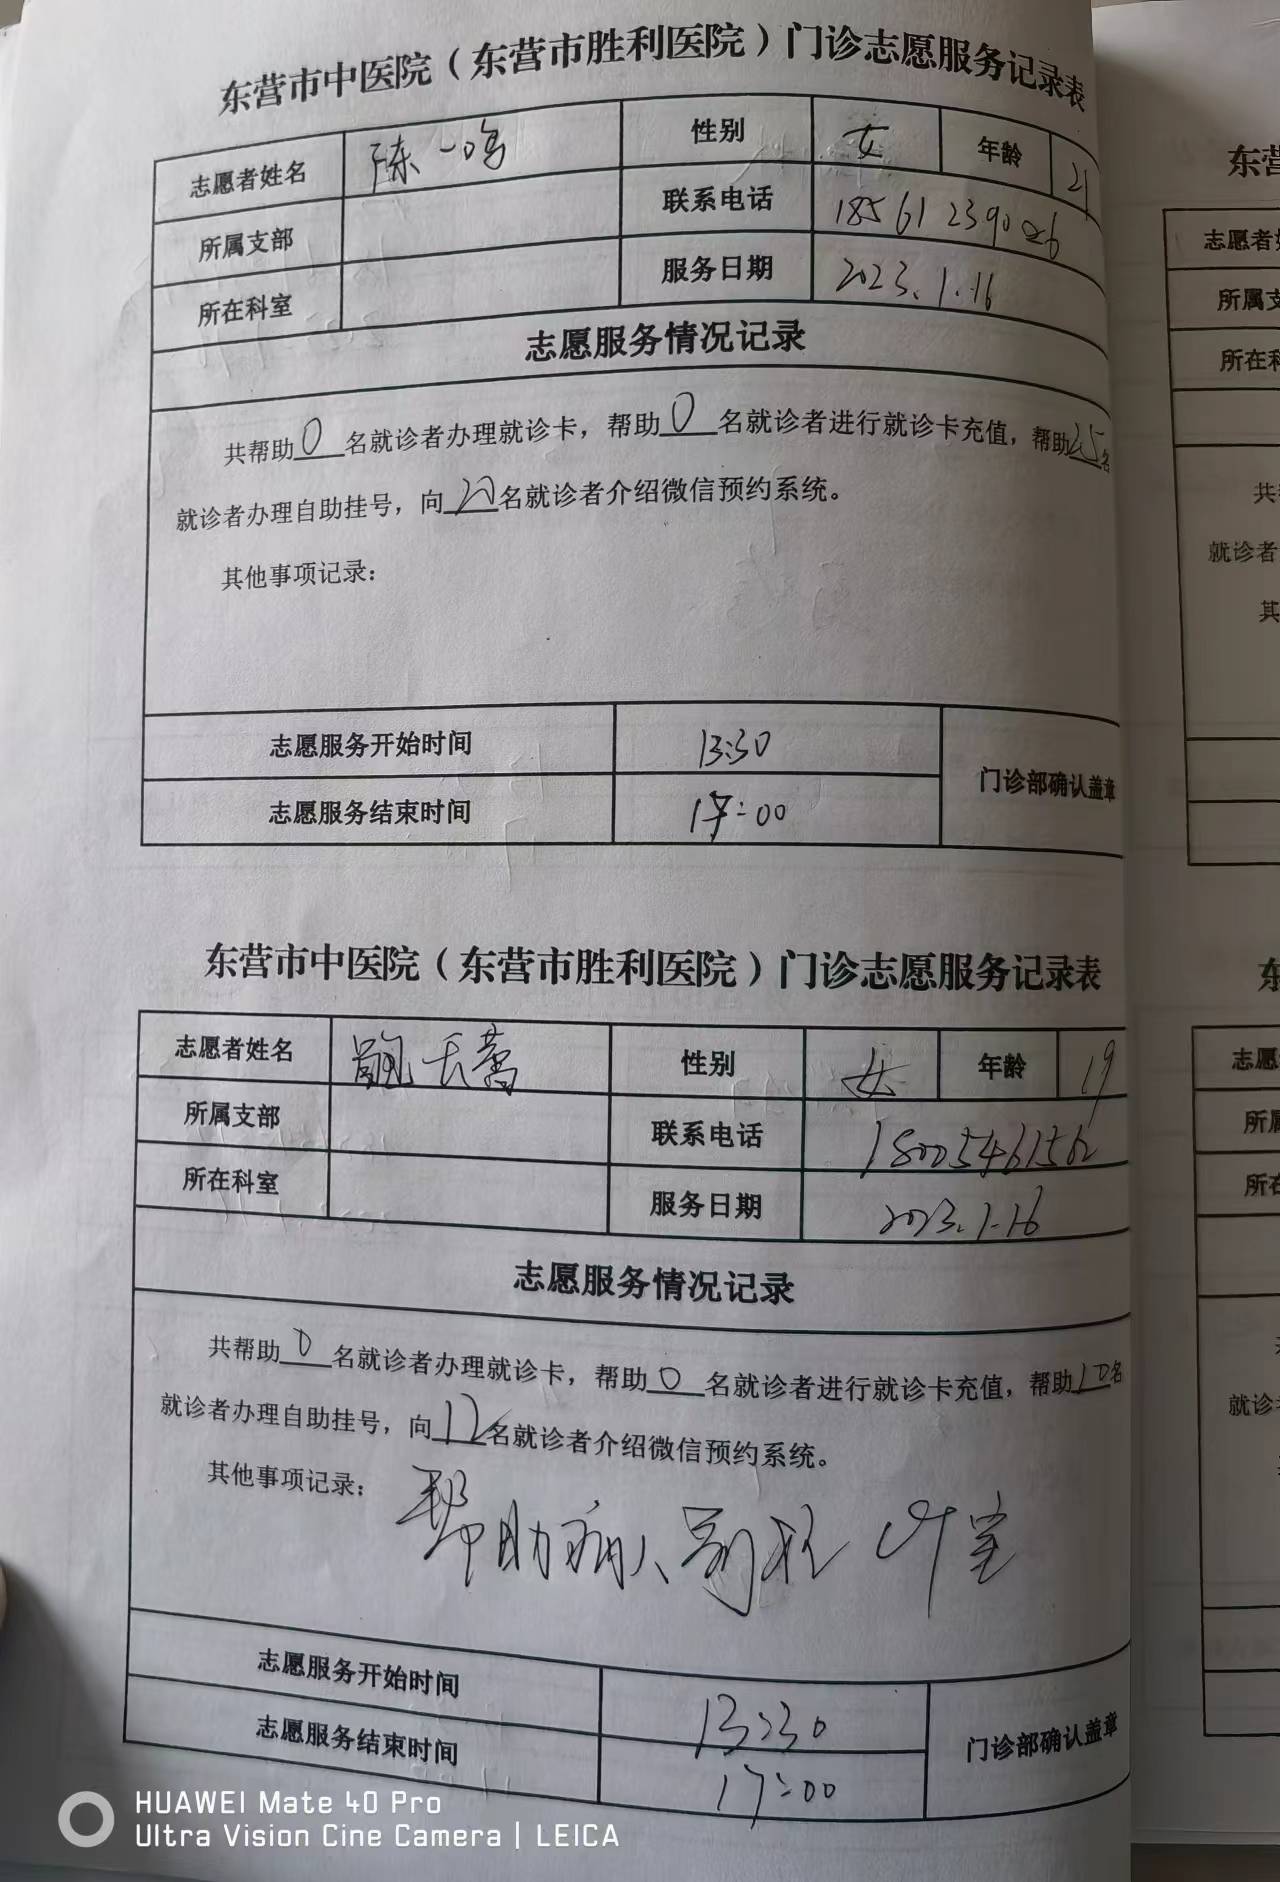 东营市中医院（东营市胜利医院）门诊志愿服务记录表
志愿者姓名 陈一鸣 性别 女 年龄 21
所属支部 联系电话 18561239026
所在科室 服务日期 2023.1.16
志愿服务情况记录
共帮助0名就诊者办理就诊卡，帮助0名就诊者进行就诊卡充值，帮助25名
就诊者办理自助挂号，向20名就诊者介绍微信预约系统。
其他事项记录：
志愿服务开始时间 13:30
门诊部确认盖章
志愿服务结束时间 17:00
东营市中医院（东营市胜利医院）门诊志愿服务记录表
志愿者姓名 天 性别 女 年龄 19
所属支部 联系电话 18005461562
所在科室 服务日期 2023.1.16
志愿服务情况记录
共帮助0名就诊者办理就诊卡，帮助0名就诊者进行就诊卡充值，帮助10名
就诊者办理自助挂号，向12名就诊者介绍微信预约系统。
其他事项记录：帮助病人 科室
志愿服务开始时间 13:30
门诊部确认盖章
志愿服务结束时间 17:00
东营
志愿者姓
所属支
所在科
共
就诊者
其
东
志愿
所属
所在
就诊
HUAWEI Mate 40 Pro
Ultra Vision Cine Camera | LEICA